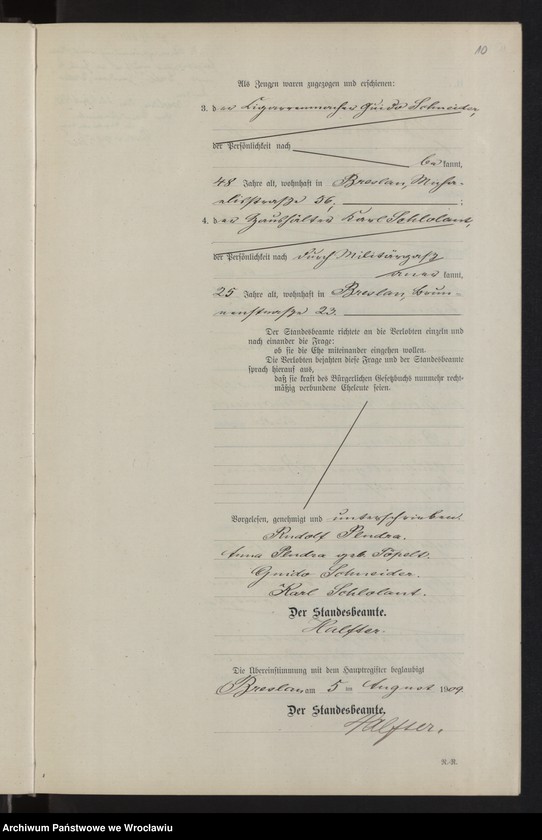 10
Als Zeugen waren zugezogen und erschienen:
3. der Cigarrenmacher Guido Schneider,
der Persönlichkeit nach
be kannt,
48 Jahre alt, wohnhaft in Breslau, Micha-
elisstraße 36, ;
4. der Haushälter Karl Schlolaut,
der Persönlichkeit nach durch Militärpaß
aner kannt,
25 Jahre alt, wohnhaft in Breslau, Brun-
nenstraße 23.
Der Standesbeamte richtete an die Verlobten einzeln und
nach einander die Frage:
ob sie die Ehe miteinander eingehen wollen.
Die Verlobten bejahten diese Frage und der Standesbeamte
sprach hierauf aus,
daß sie kraft des Bürgerlichen Gesetzbuchs nunmehr recht-
mäßig verbundene Eheleute seien.
Vorgelesen, genehmigt und unterschrieben.
Rudolf Pendra.
Anna Pendra geb. Töpelt.
Guido Schneider.
Karl Schlolaut.
Der Standesbeamte.
Halfter.
Die Übereinstimmung mit dem Hauptregister beglaubigt
Breslau am 5 ten August 1909
Der Standesbeamte.
Halfter.
R.-R.
Archiwum Państwowe we Wrocławiu